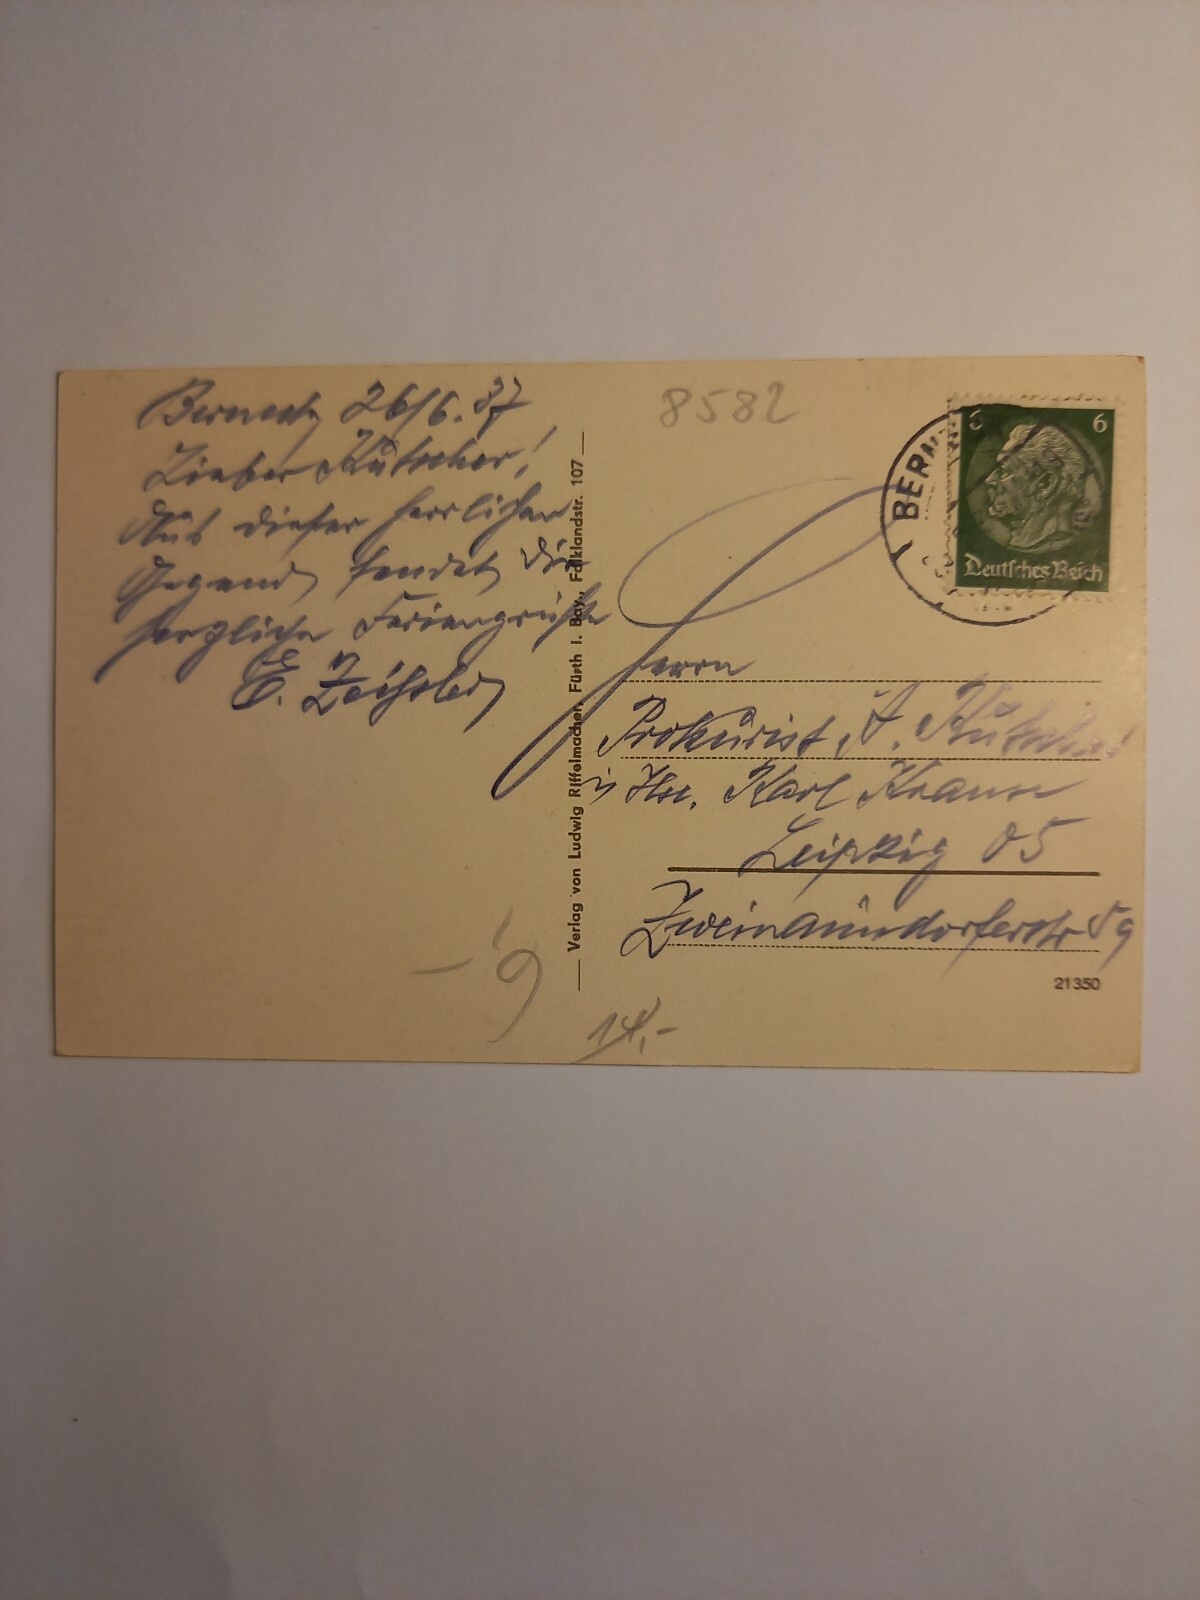 Berneck 26/6. 37
Lieber Kutscher!
Aus dieser herrlichen
Gegend sendet Dir
herzliche Feriengrüße
E.
8582
BERN
6 6
Deutsches Reich
Herrn
Prokurist A. Kutscher
Karl Krause
Leipzig O5
Zweinaundorferstr 59
21350
Verlag von Ludwig Riffelmacher, Fürth i. Bay., Falklandstr. 107
14,-